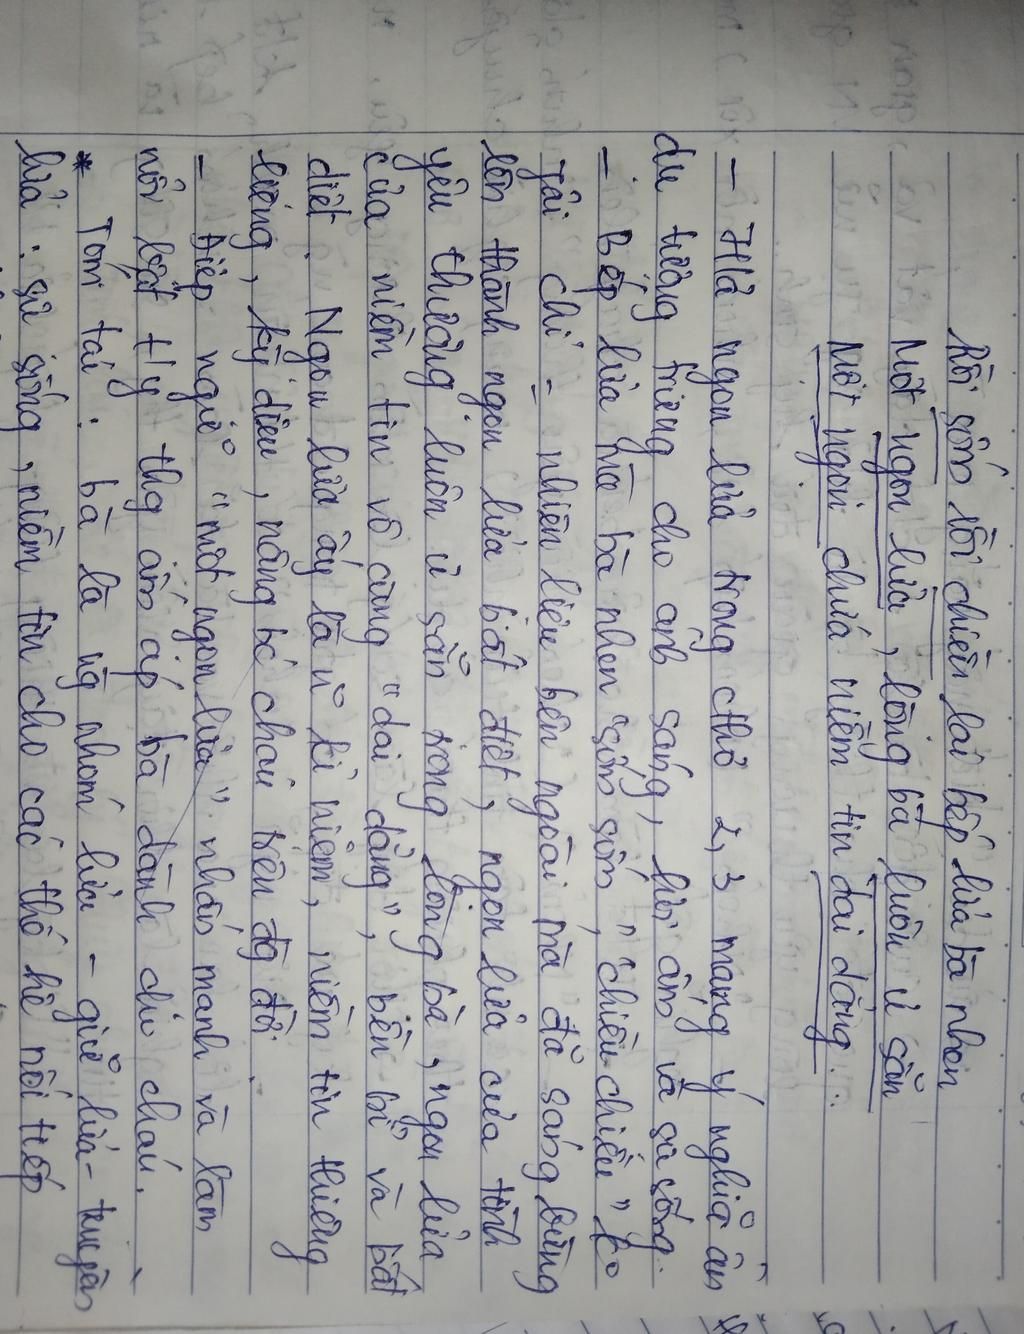 Rồi sớm rồi chiều lại bếp lửa bà nhen
Một ngọn lửa, lòng bà luôn ủ sẵn
Một ngọn chứa niềm tin dai dẳng...
- H/ả ngọn lửa trong câu thơ 2, 3 mang ý nghĩa ẩn
dụ tượng trưng cho ánh sáng, hơi ấm và sự sống.
- Bếp lửa mà bà nhen "sớm sớm", "chiều chiều" ko
phải chỉ = nhiên liệu bên ngoài mà đã sáng bừng
lên thành ngọn lửa bất diệt, ngọn lửa của tình
yêu thương luôn ủ sẵn trong lòng bà, "ngọn lửa
của niềm tin vô cùng "dai dẳng", bền bỉ và bất
diệt. Ngọn lửa ấy là kỉ niệm, niềm tin thiêng
liêng, kỳ diệu, nâng bước cháu trên đg đời.
- Điệp ngữ "một ngọn lửa" nhấn mạnh và làm
nổi bật ty thg ấm áp bà dành cho cháu.
* Tóm lại: bà là ng nhóm lửa - giữ lửa - truyền
lửa: sự sống, niềm tin cho các thế hệ nối tiếp